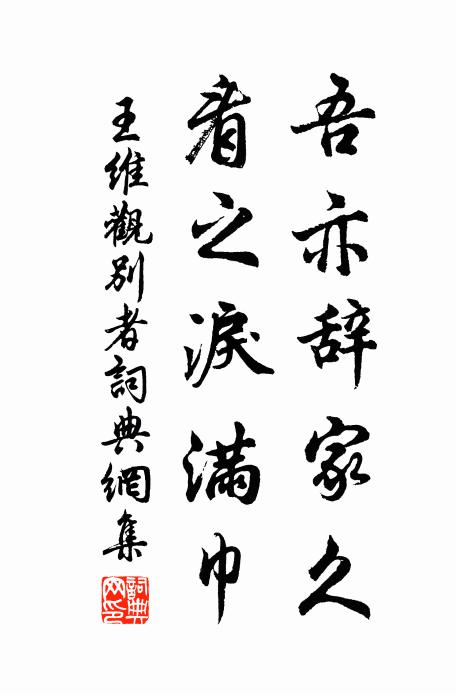 吾亦辞家久
看之淚滿巾
王維觀別者詞典網集
詞典
网印